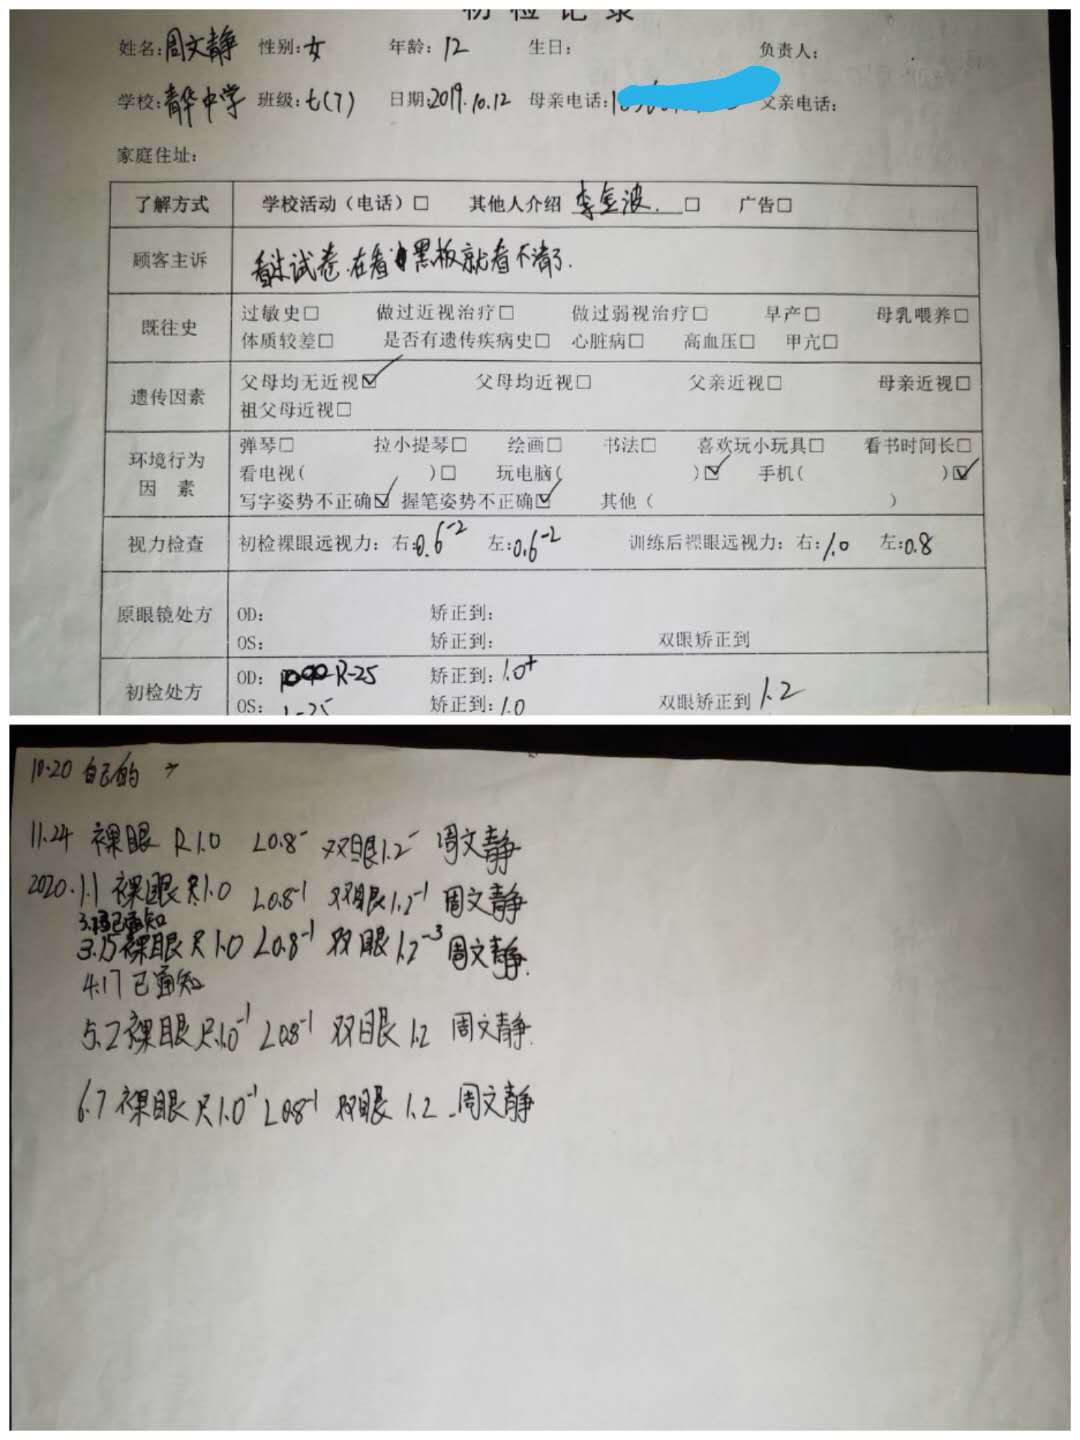 初检记录
姓名:周文静 性别:女 年龄:12 生日: 负责人:
学校:青华中学 班级:七(7) 日期:2019.10.12 母亲电话: 父亲电话:
家庭住址:
了解方式 学校活动（电话）□ 其他人介绍 李金波. □ 广告□
顾客主诉 看过试卷.在看黑板就看不清了.
既往史 过敏史□ 做过近视治疗□ 做过弱视治疗□ 早产□ 母乳喂养□
体质较差□ 是否有遗传疾病史□ 心脏病□ 高血压□ 甲亢□
遗传因素 父母均无近视☑ 父母均近视□ 父亲近视□ 母亲近视□
祖父母近视□
环境行为因素 弹琴□ 拉小提琴□ 绘画□ 书法□ 喜欢玩小玩具□ 看书时间长□
看电视( )□ 玩电脑( )☑ 手机( )☑
写字姿势不正确☑ 握笔姿势不正确☑ 其他（ ）
视力检查 初检裸眼远视力：右:0.6⁻² 左:0.6⁻² 训练后裸眼远视力：右:1.0 左:0.8
原眼镜处方 OD: 矫正到:
OS: 矫正到: 双眼矫正到
初检处方 OD: R-25 矫正到:1.0⁺
OS: L-25 矫正到:1.0 双眼矫正到 1.2
10.20 自己的
11.24 裸眼 R1.0 L0.8⁻ 双眼1.2⁻ 周文静
2020.1.1 裸眼R1.0 L0.8⁻¹ 双眼1.2⁻¹ 周文静
已通知
3.15裸眼R1.0 L0.8⁻¹ 双眼1.2⁻³ 周文静.
4.17已通知
5.2裸眼R1.0⁻¹ L0.8⁻¹ 双眼1.2 周文静.
6.7裸眼R1.0⁻¹ L0.8⁻¹ 双眼1.2.周文静